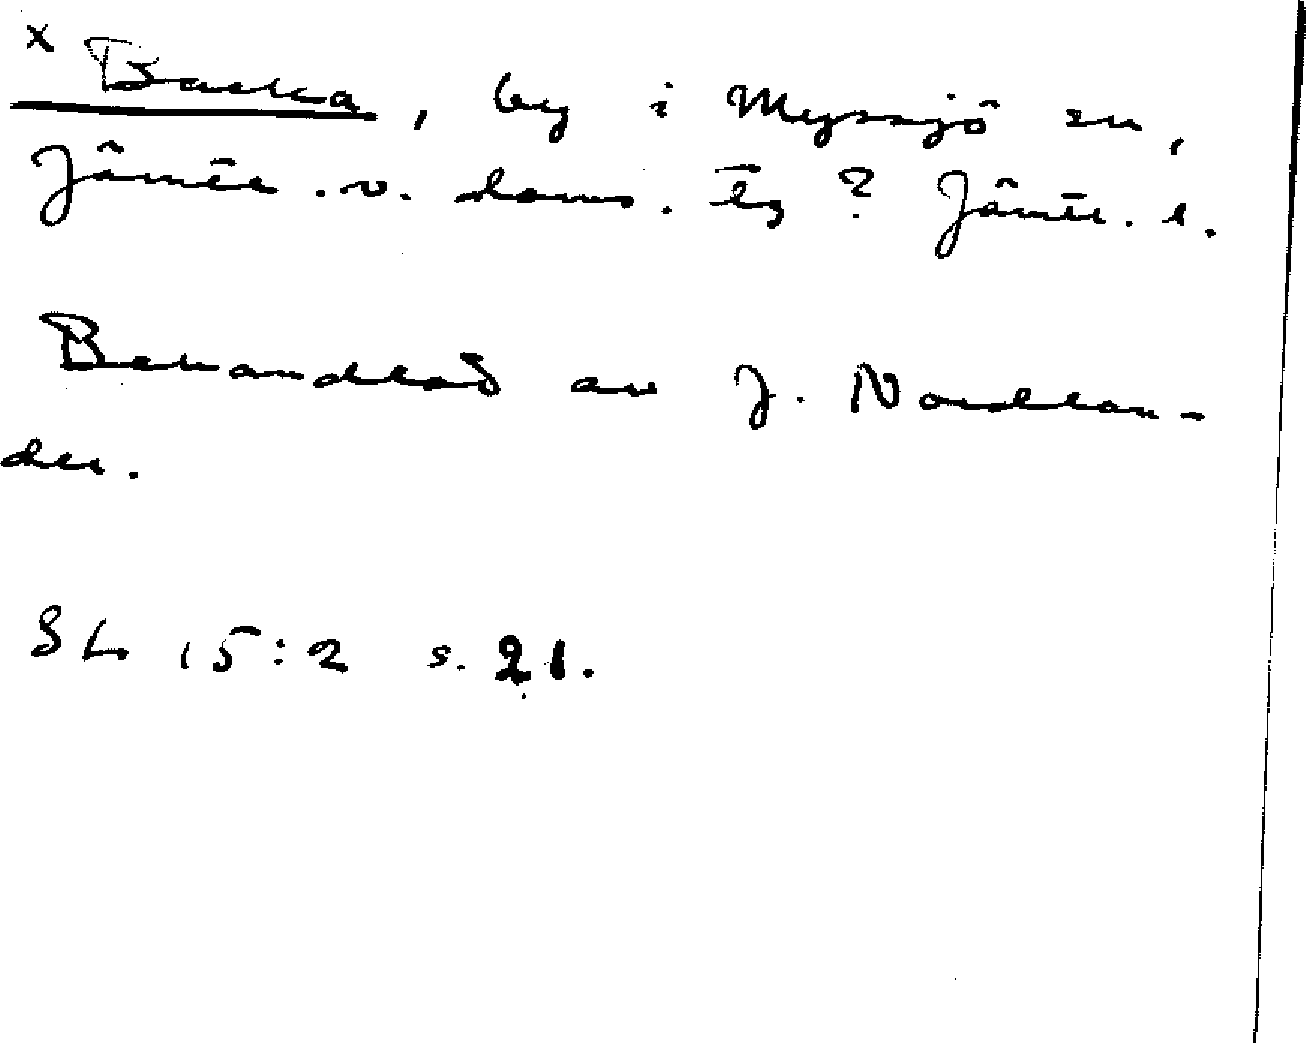 x Backa, by i Myssjö sn,
Jämtl. v. doms. tg ? Jämtl. l.
Behandlad av J. Nordlan-
der.
SL 15:2 s. 21.